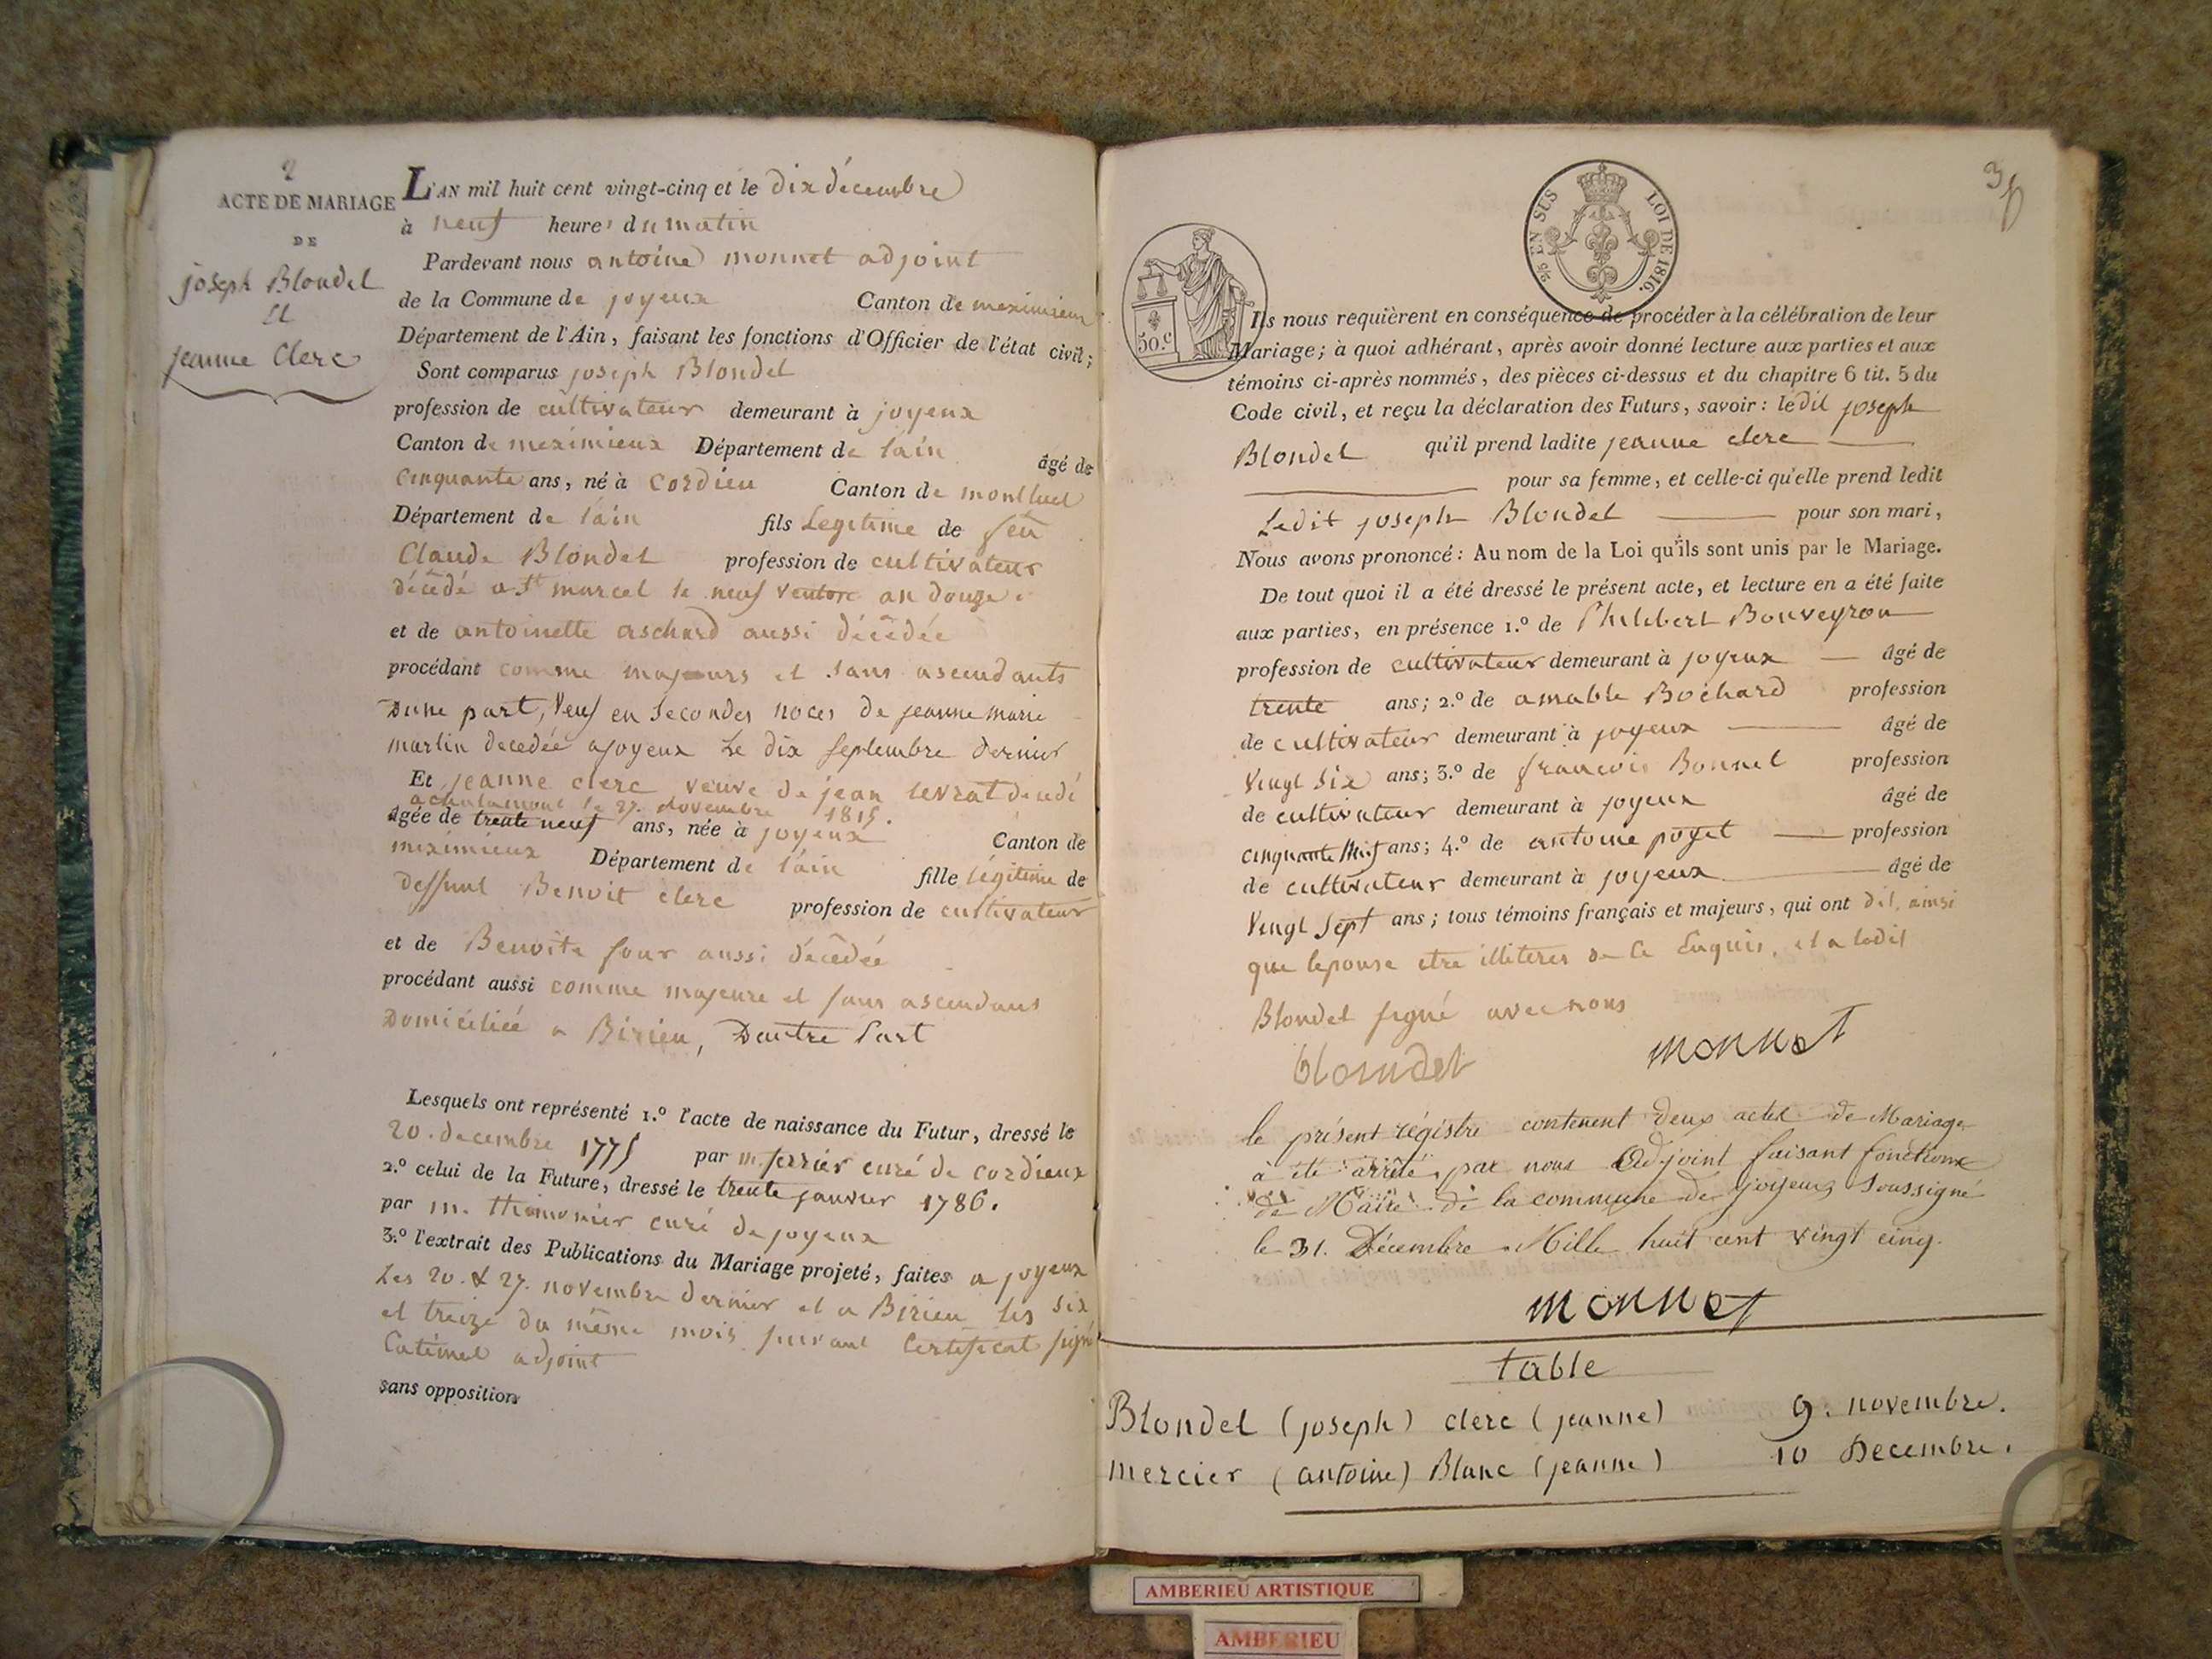 2
ACTE DE MARIAGE
DE
joseph Blondel
et
jeanne Clerc
L'AN mil huit cent vingt-cinq et le dix décembre
à neuf heures du matin
Pardevant nous antoine monnet adjoint
de la Commune de joyeux Canton de meximieux
Département de l'Ain, faisant les fonctions d'Officier de l'état civil;
Sont comparus joseph Blondel
profession de cultivateur demeurant à joyeux
Canton de meximieux Département de lain âgé de
cinquante ans, né à cordieu Canton de montluel
Département de lain fils Legitime de feu
Claude Blondel profession de cultivateur
décédé a St marcel le neuf ventore an douze
et de antoinette aschard aussi décédée
procédant comme majeurs et sans ascendants
Dune part, Veuf en Secondes noces de jeanne marie
martin decedée a joyeux Le dix Septembre dernier
Et jeanne clerc veuve de jean levrat décédé
a chalamont le 27. novembre 1815.
âgée de trente neuf ans, née à joyeux Canton de
meximieux Département de lain fille légitime de
deffunt Benoit clerc profession de cultivateur
et de Benoite four aussi décédée
procédant aussi comme majeure et sans ascendans
Domiciliée a Birieu, Dautre Part
Lesquels ont représenté 1.º l'acte de naissance du Futur, dressé le
20. decembre 1775 par m. ferrier curé de cordieux
2.º celui de la Future, dressé le trente janvier 1786.
par m. curé de joyeux
3.º l'extrait des Publications du Mariage projeté, faites a joyeux
Les 20. & 27. novembre dernier et a Birieu les six
et treize du même mois suivant Certificat signé
Catimel adjoint
sans opposition
3
EN SUS LOI DE 1816.
50.c
Ils nous requièrent en conséquence de procéder à la célébration de leur
Mariage; à quoi adhérant, après avoir donné lecture aux parties et aux
témoins ci-après nommés, des pièces ci-dessus et du chapitre 6 tit. 5 du
Code civil, et reçu la déclaration des Futurs, savoir: ledit joseph
Blondel qu'il prend ladite jeanne clerc
pour sa femme, et celle-ci qu'elle prend ledit
Ledit joseph Blondel pour son mari,
Nous avons prononcé: Au nom de la Loi qu'ils sont unis par le Mariage.
De tout quoi il a été dressé le présent acte, et lecture en a été faite
aux parties, en présence 1.º de Philibert Bouveyron
profession de cultivateur demeurant à joyeux âgé de
trente ans; 2.º de amable Bochard profession
de cultivateur demeurant à joyeux âgé de
Vingt Six ans; 3.º de francois Bonnet profession
de cultivateur demeurant à joyeux âgé de
cinquante Neuf ans; 4.º de antoine poget profession
de cultivateur demeurant à joyeux âgé de
Vingt Sept ans; tous témoins français et majeurs, qui ont dit, ainsi
que lepouse etre illiteres de ce Enquis, et a ledit
Blondel signé avec nous
blondel monnet
le présent régistre contenent deux actes de Mariage
à été arrêté par nous Adjoint faisant fonctions
de Maire de la commune de joyeux Soussigné
le 31. Décembre Mille huit cent vingt cinq.
monnet
table
Blondel (joseph) clerc (jeanne) 9. novembre.
mercier (antoine) Blanc (jeanne) 10 Decembre.
AMBERIEU ARTISTIQUE
AMBERIEU